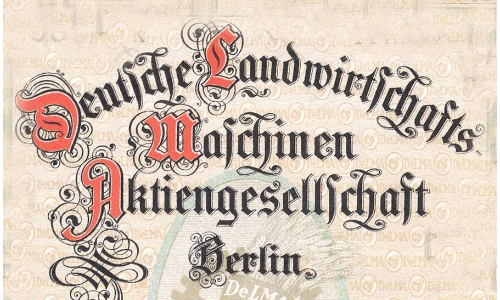 Deutsche Landwirtschafts
Maschinen
Aktiengesellschaft
Berlin.
DeLMA